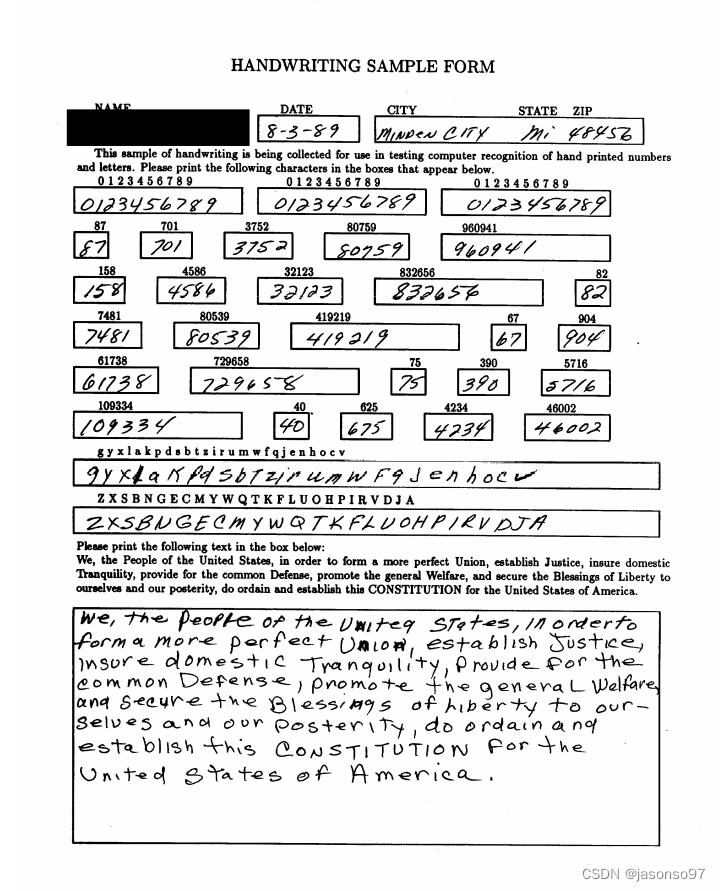 HANDWRITING SAMPLE FORM
DATE CITY STATE ZIP
8-3-89 MINDEN CITY Mi 48456
This sample of handwriting is being collected for use in testing computer recognition of hand printed numbers
and letters. Please print the following characters in the boxes that appear below.
0 1 2 3 4 5 6 7 8 9 0 1 2 3 4 5 6 7 8 9 0 1 2 3 4 5 6 7 8 9
0123456789 0123456789 0123456789
87 701 3752 80759 960941
87 701 3752 80759 960941
158 4586 32123 832656 82
158 4586 32123 832656 82
7481 80539 419219 67 904
7481 80539 419219 67 904
61738 729658 75 390 5716
61738 729658 75 390 5716
109334 40 625 4234 46002
109334 40 675 4234 46002
g y x l a k p d s b t z i r u m w f q j e n h o c v
g y x l a K p d s b T z i r u m w F q J e n h o c v
Z X S B N G E C M Y W Q T K F L U O H P I R V D J A
Z X S B N G E C M Y W Q T K F L U O H P I R V D J A
Please print the following text in the box below:
We, the People of the United States, in order to form a more perfect Union, establish Justice, insure domestic
Tranquility, provide for the common Defense, promote the general Welfare, and secure the Blessings of Liberty to
ourselves and our posterity, do ordain and establish this CONSTITUTION for the United States of America.
We, the People of the United States, in order to
form a more perfect Union, establish Justice,
insure domestic Tranquility, Provide for the
common Defense, promote the general Welfare,
and secure the Blessings of Liberty to our-
selves and our posterity, do ordain and
establish this CONSTITUTION for the
United States of America.
CSDN @jasonso97